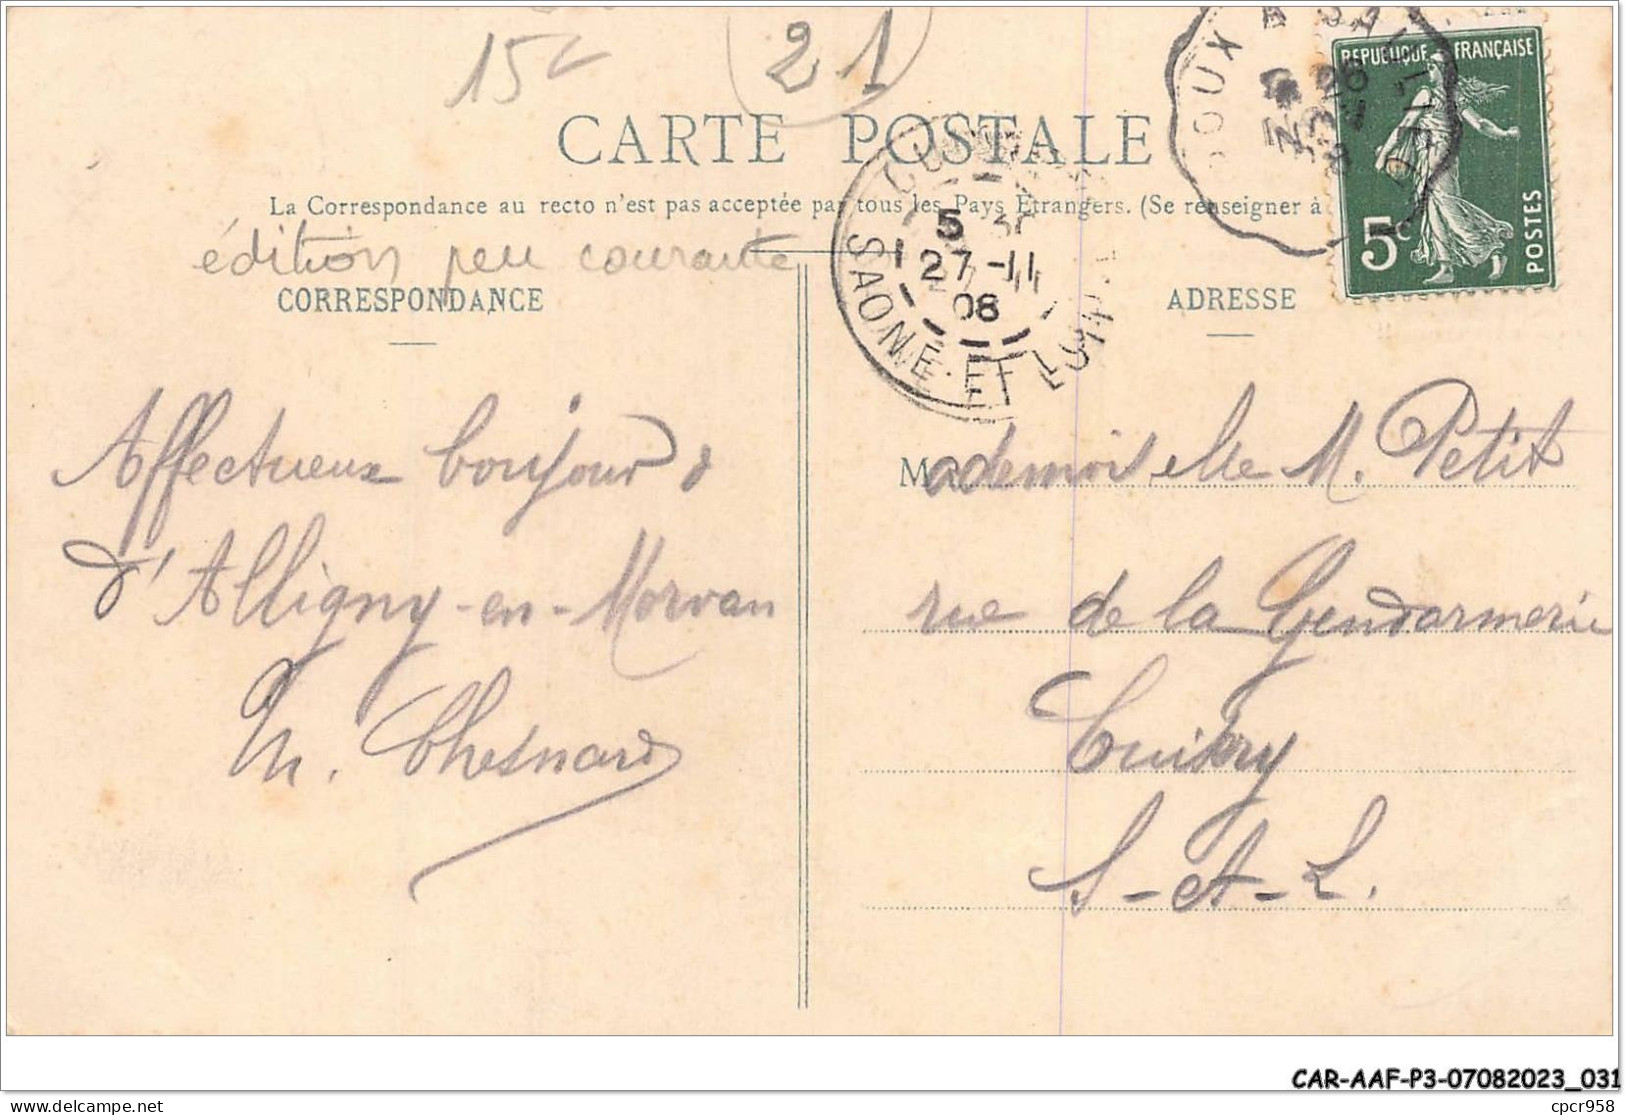 15
21
CARTE POSTALE
La Correspondance au recto n'est pas acceptée par tous les Pays Etrangers. (Se renseigner à
édition peu courante
CORRESPONDANCE
ADRESSE
REPUBLIQUE FRANÇAISE
5c
POSTES
5
27-11
08
SAONE-ET-LOIRE
Affectueux bonjour
d'Alligny-en-Morvan
M. Chesnard
Mademoiselle M. Petit
rue de la Gendarmerie
Cuisery
S-et-L.
CAR-AAF-P3-07082023_031
cpcr958